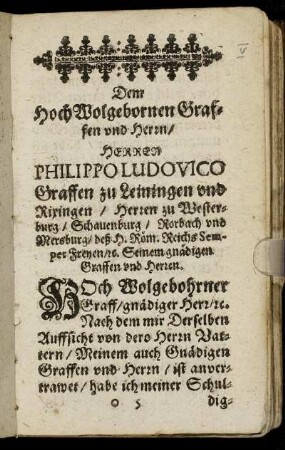 Dem
Hoch Wolgebornen Graf-
fen vnd Herrn/
HERREN
PHILIPPO LUDOVICO
Graffen zu Leiningen vnd
Rixingen / Herren zu Wester-
burg / Schauenburg / Rorbach vnd
Mersburg / deß H. Röm. Reichs Sem-
per Freyen/ ꝛc. Seinem gnädigen
Graffen vnd Herren.
HOch Wolgebohrner
Graff/ gnädiger Herr/ ꝛc.
Nach dem mir Derselben
Auffsicht von dero Herrn Vat-
tern / Meinem auch Gnädigen
Graffen vnd Herrn / ist anver-
trawet / habe ich meiner Schul-
o 5 dig-